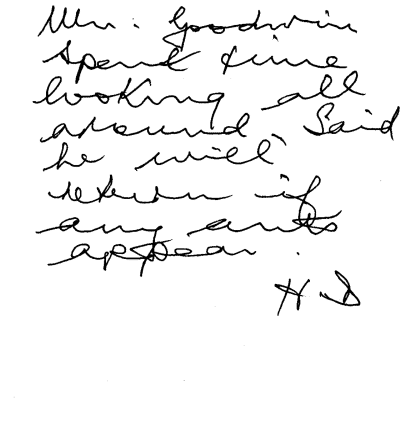 Mr. Goodwin
spent time
looking all
around. Said
he will
return if
any ants
appear.
H.D